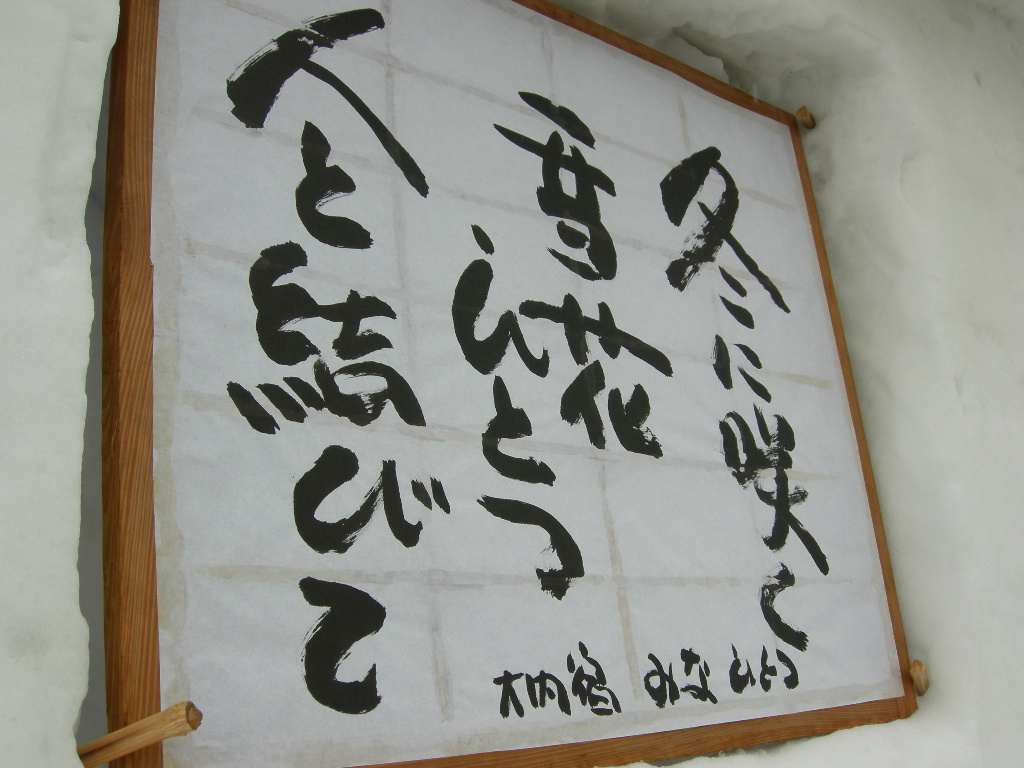 冬に咲く
雪花
ひとつ
人と結びて
大内宿 みな ひとつ